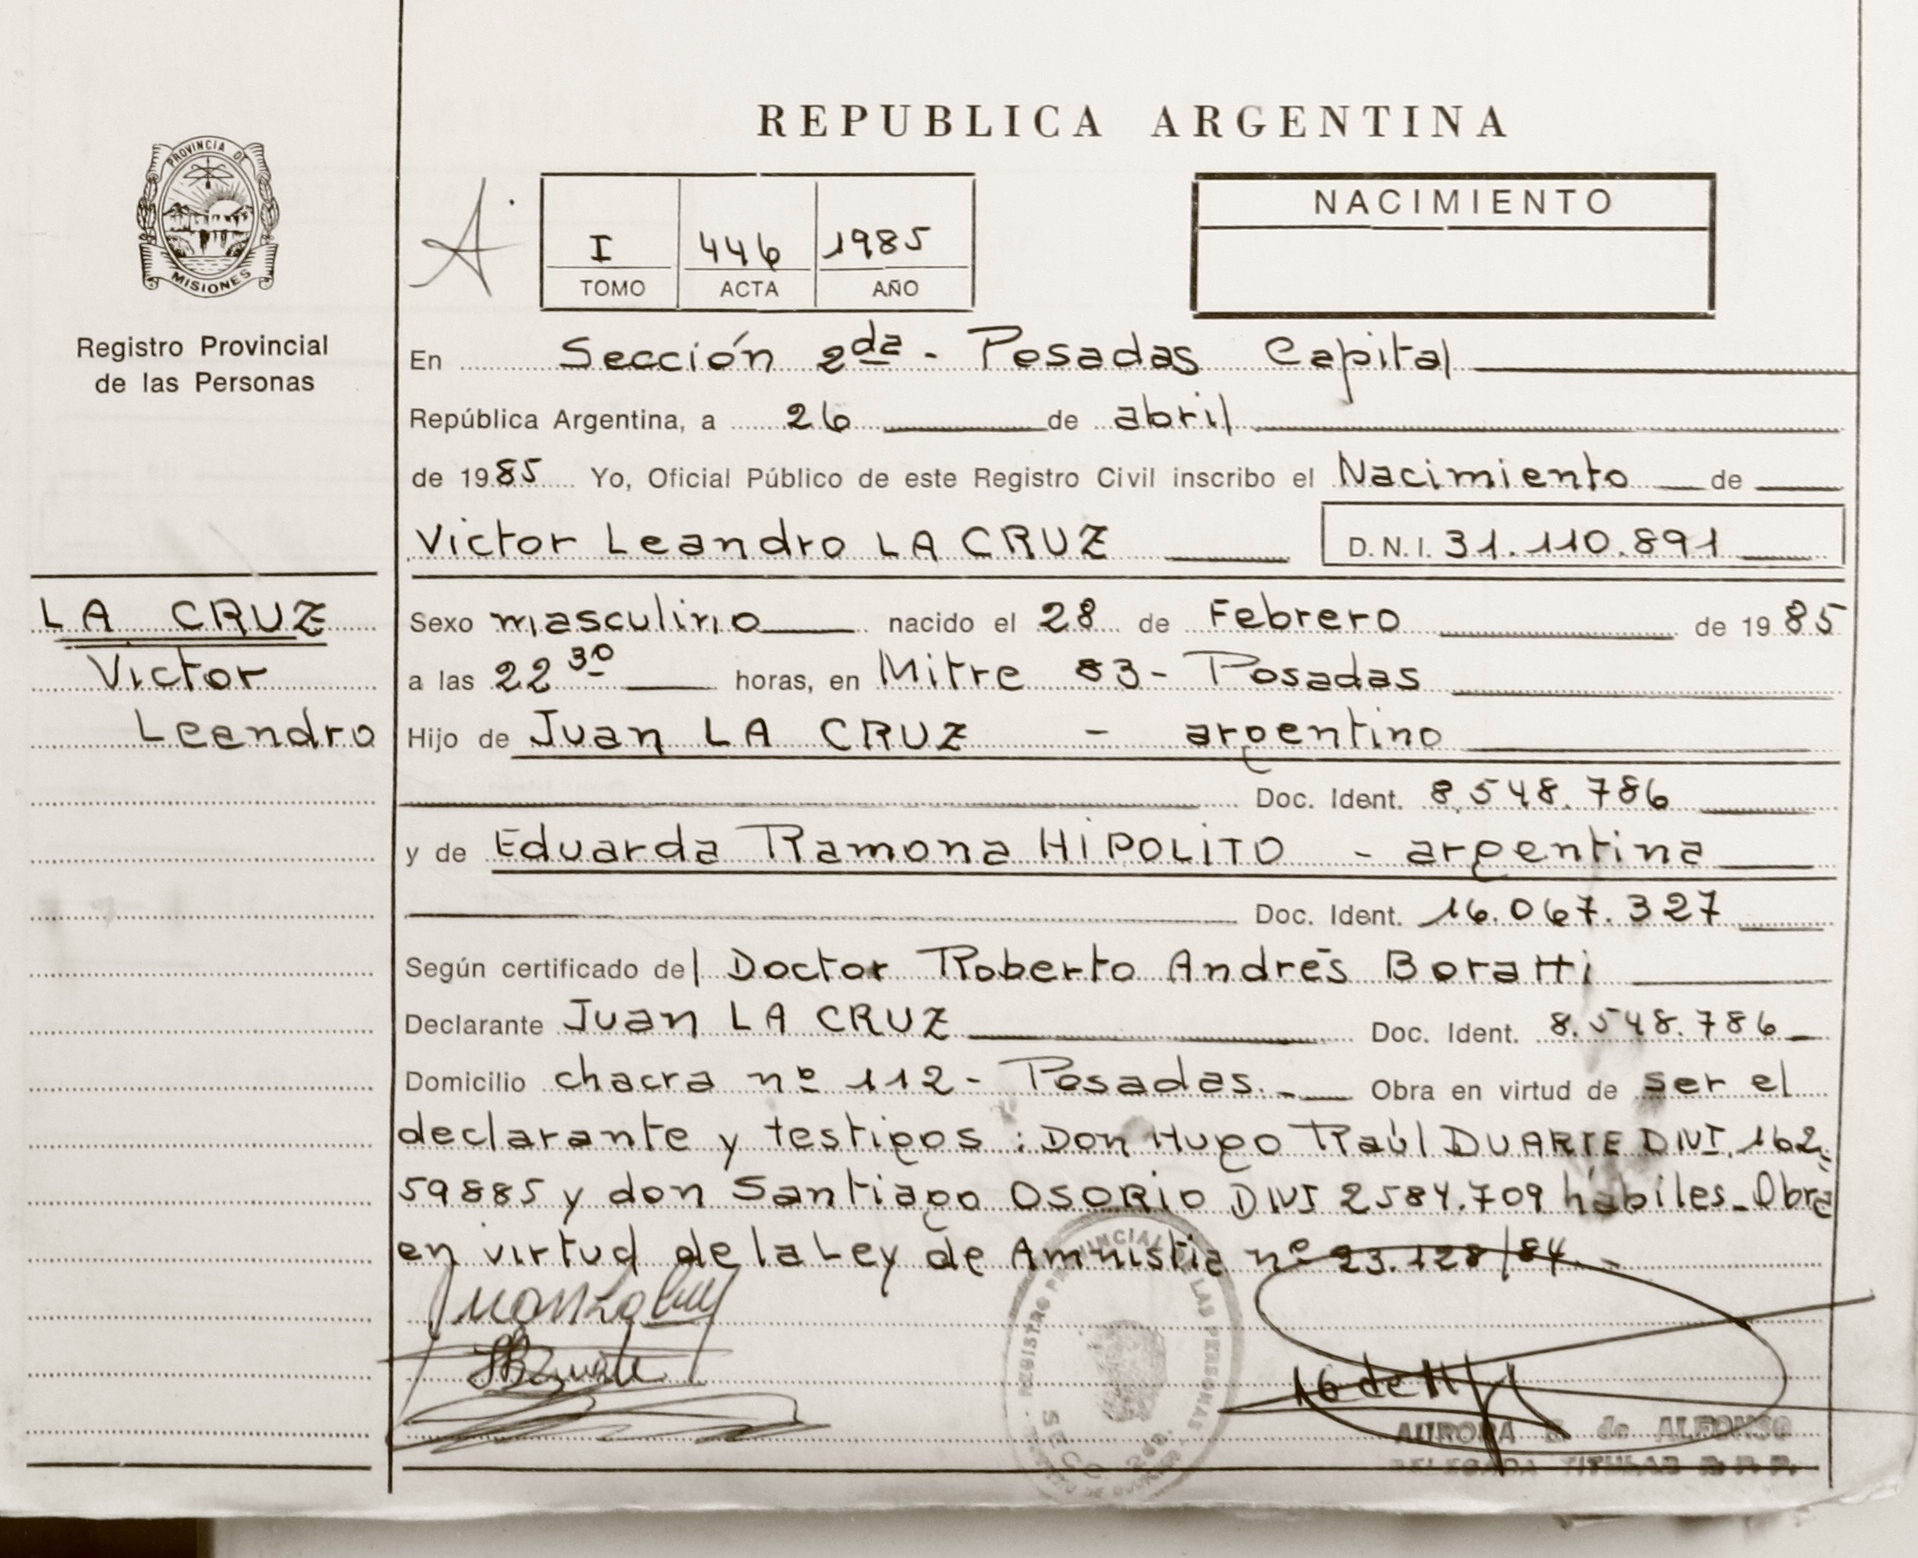 REPUBLICA ARGENTINA
PROVINCIA DE
MISIONES
Registro Provincial
de las Personas
A
I 446 1985
TOMO ACTA AÑO
NACIMIENTO
En Sección 2da - Posadas Capital
República Argentina, a 26 de abril
de 1985 Yo, Oficial Público de este Registro Civil inscribo el Nacimiento de
Victor Leandro LA CRUZ D.N.I. 31.110.891
LA CRUZ
Victor
Leandro
Sexo masculino nacido el 28 de Febrero de 1985
a las 22 30 horas, en Mitre 83 - Posadas
Hijo de Juan LA CRUZ - argentino
Doc. Ident. 8.548.786
y de Eduarda Ramona HIPOLITO - argentina
Doc. Ident. 16.067.327
Según certificado del Doctor Roberto Andrés Boratti
Declarante Juan LA CRUZ Doc. Ident. 8.548.786
Domicilio chacra nº 112 - Posadas. Obra en virtud de ser el
declarante y testigos : Don Hugo Raúl DUARTE DNI. 162.
59885 y don Santiago OSORIO DNI 2584.709 hábiles - Obra
en virtud de la Ley de Amnistia nº 23.128/84.-
REGISTRO PROVINCIAL DE LAS PERSONAS
SECC. 2da.
AURORA E. de ALFONSO
DELEGADA TITULAR R. P. P.